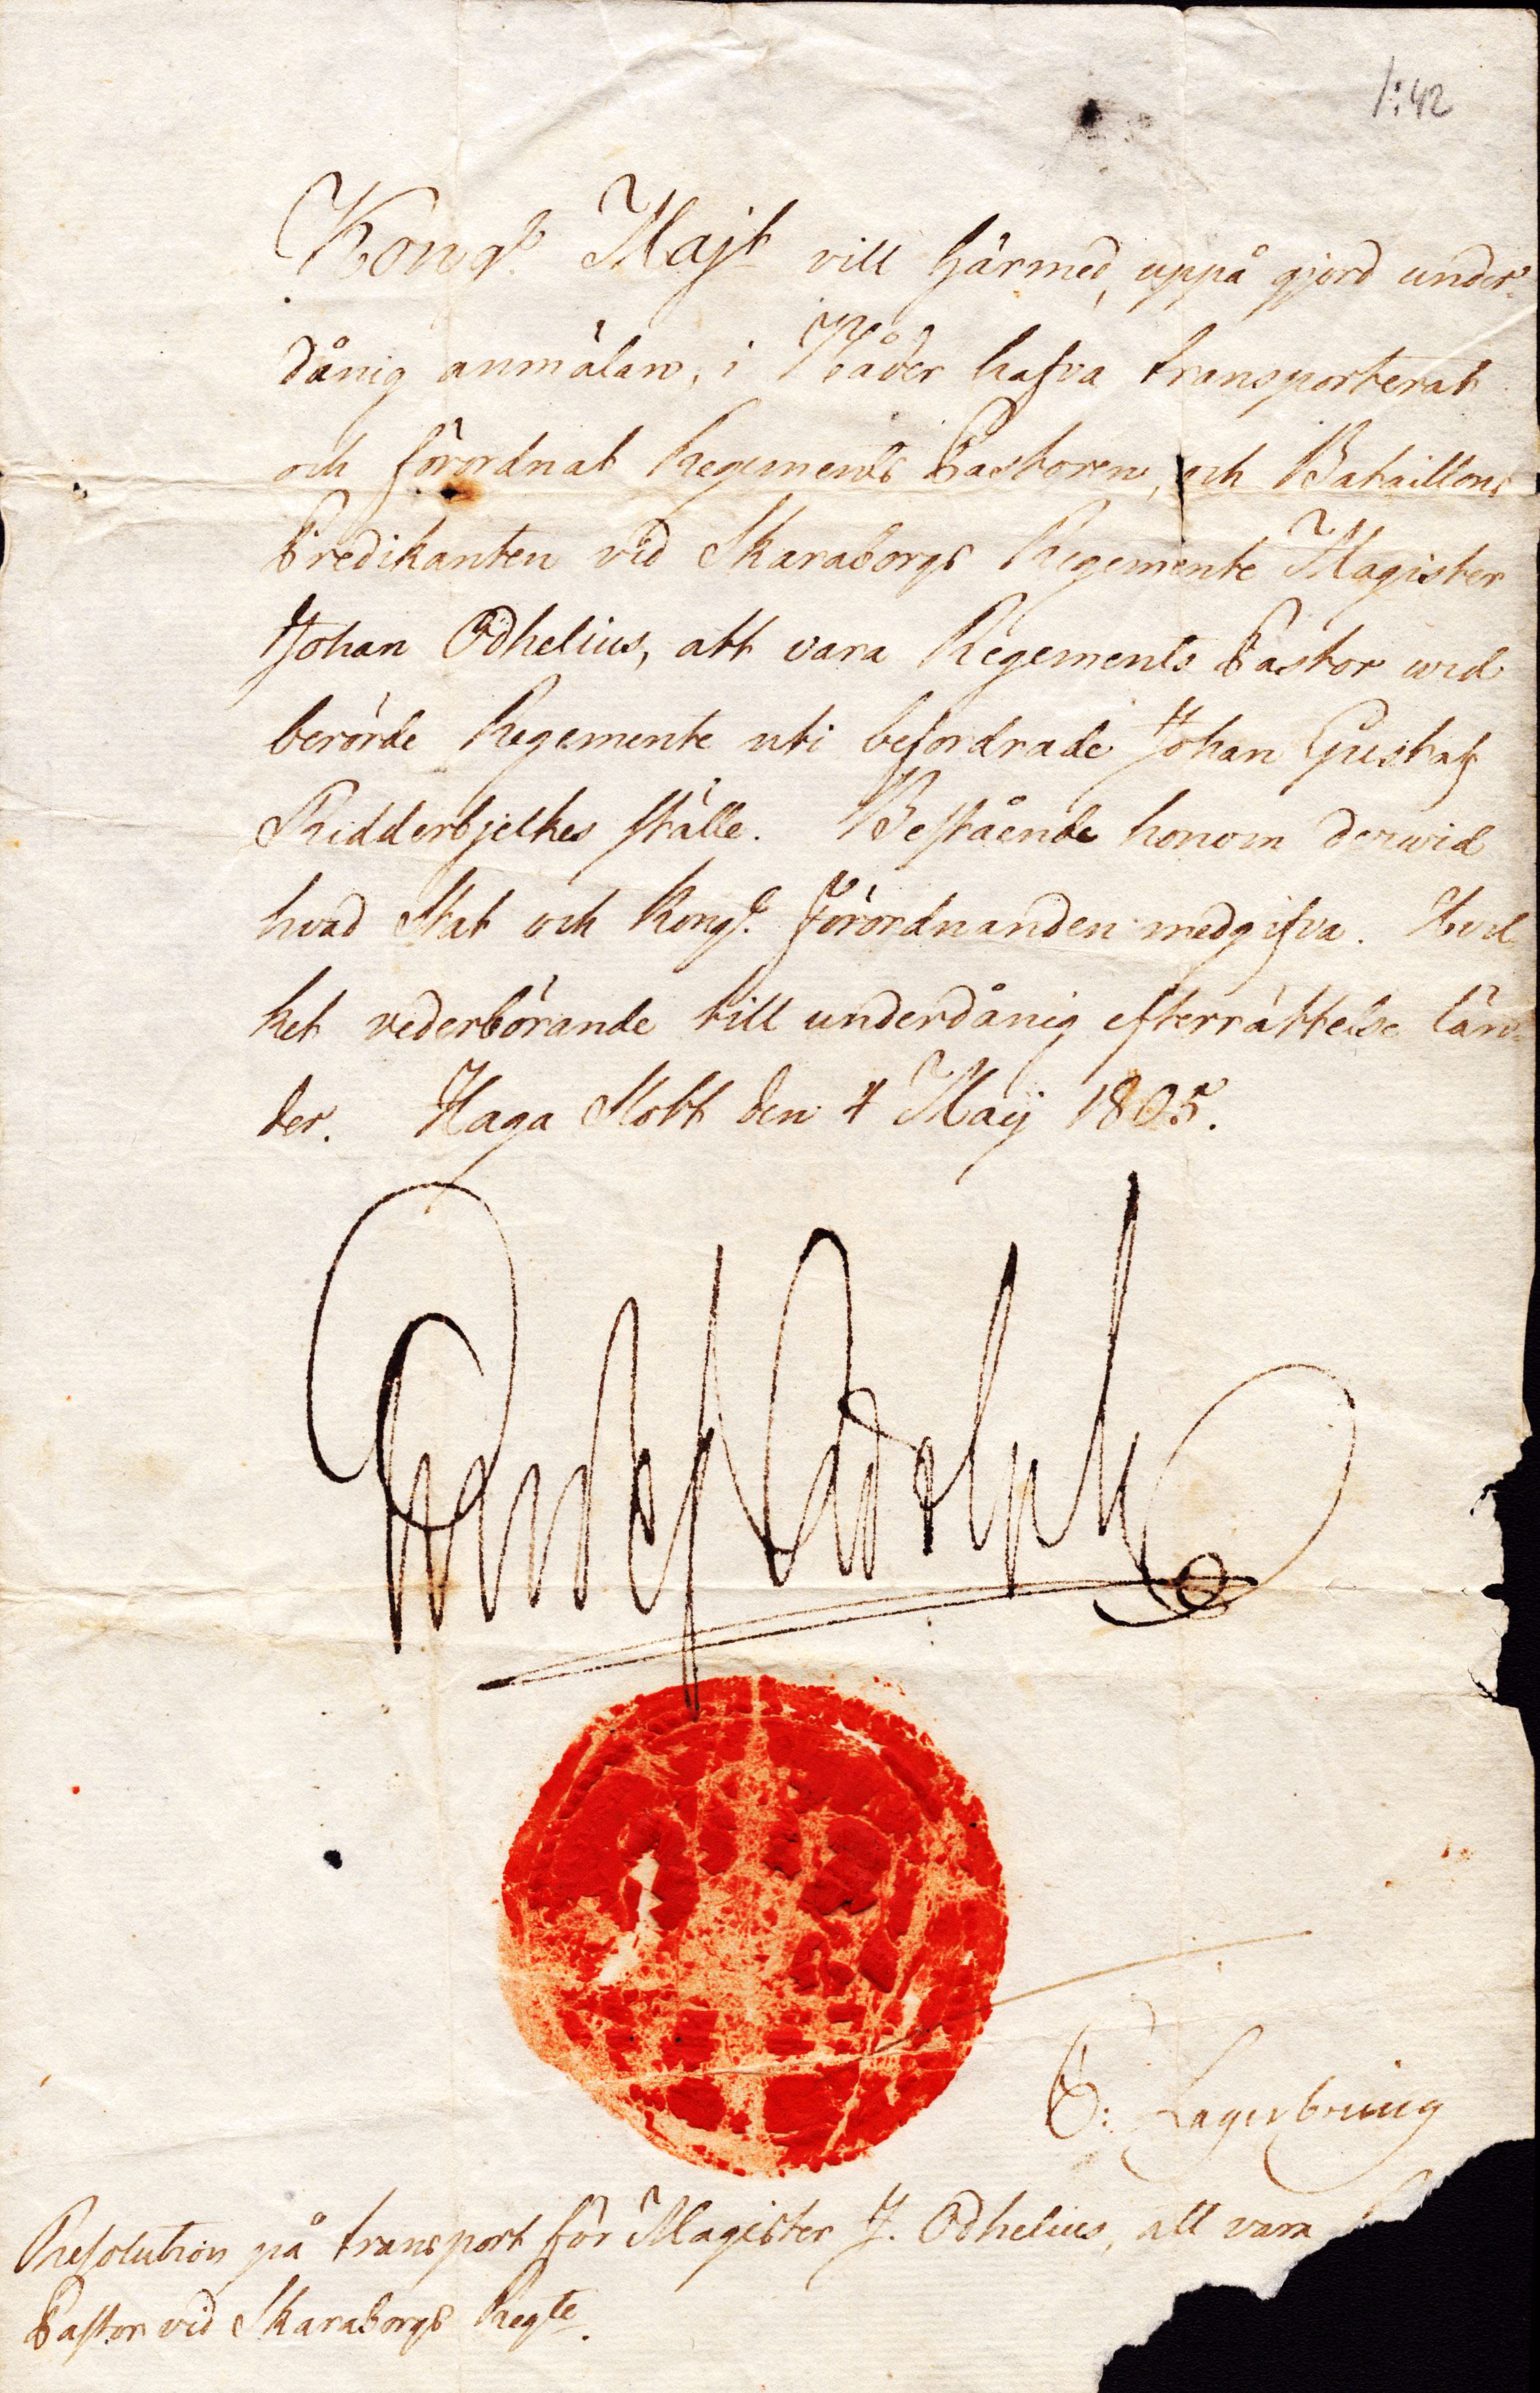 1:42
Kongl. Majt vill härmed, uppå gjord under-
dånig anmälan, i Nåder hafva transporterat
och förordnat Regements Pastoren, och Bataillons
Predikanten vid Skaraborgs Regemente Magister
Johan Odhelius, att vara Regements Pastor wid
berörde Regemente uti befordrade Johan Gustaf
Ridderbjelkes ställe. Bestående honom derwid
hvad Stat och Kongl. Förordnanden medgifva. Hvil-
ket vederbörande till underdånig efterrättelse län-
der. Haga Slott den 4 Maij 1805.
Gustaf Adolph
O: Lagerbring
Resolution på transport för Magister J. Odhelius, att vara
Pastor vid Skaraborgs Regte.